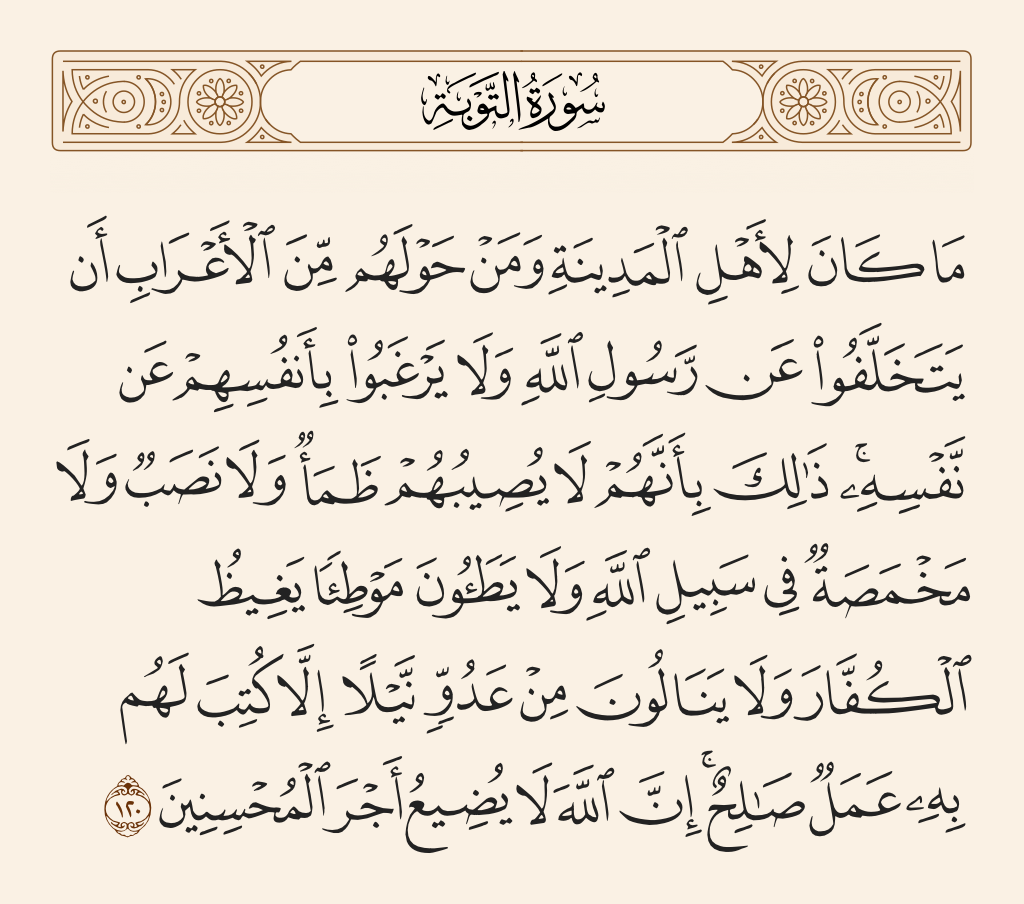 سُورَةُ التَّوۡبَةِ
مَا كَانَ لِأَهۡلِ ٱلۡمَدِينَةِ وَمَنۡ حَوۡلَهُم مِّنَ ٱلۡأَعۡرَابِ أَن
يَتَخَلَّفُواْ عَن رَّسُولِ ٱللَّهِ وَلَا يَرۡغَبُواْ بِأَنفُسِهِمۡ عَن
نَّفۡسِهِۦۚ ذَٰلِكَ بِأَنَّهُمۡ لَا يُصِيبُهُمۡ ظَمَأٞ وَلَا نَصَبٞ وَلَا
مَخۡمَصَةٞ فِي سَبِيلِ ٱللَّهِ وَلَا يَطَـُٔونَ مَوۡطِئٗا يَغِيظُ
ٱلۡكُفَّارَ وَلَا يَنَالُونَ مِنۡ عَدُوّٖ نَّيۡلًا إِلَّا كُتِبَ لَهُم
بِهِۦ عَمَلٞ صَٰلِحٌۚ إِنَّ ٱللَّهَ لَا يُضِيعُ أَجۡرَ ٱلۡمُحۡسِنِينَ ١٢٠